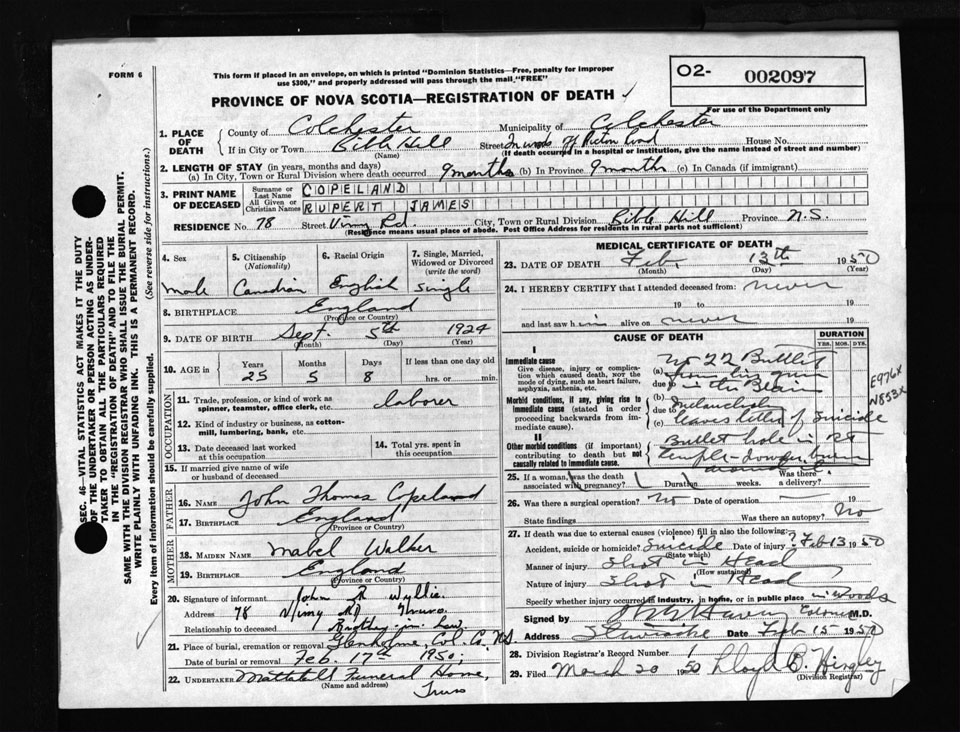 FORM 6
This form if placed in an envelope, on which is printed "Dominion Statistics—Free, penalty for improper
use $300," and properly addressed will pass through the mail "FREE"
O2- 002097
For use of the Department only
PROVINCE OF NOVA SCOTIA—REGISTRATION OF DEATH
1. PLACE OF DEATH
County of Colchester Municipality of Colchester
If in City or Town Bible Hill Street In woods off Picton Road House No.
(Name) (If death occurred in a hospital or institution, give the name instead of street and number)
2. LENGTH OF STAY (in years, months and days)
(a) In City, Town or Rural Division where death occurred 9 months (b) In Province 9 months (c) In Canada (if immigrant)
3. PRINT NAME OF DECEASED
Surname or Last Name COPELAND
All Given or Christian Names RUPERT JAMES
RESIDENCE No. 78 Street Vimy Rd. City, Town or Rural Division Bible Hill Province N.S.
(Residence means usual place of abode. Post Office Address for residents in rural parts not sufficient)
4. Sex
male
5. Citizenship (Nationality)
Canadian
6. Racial Origin
English
7. Single, Married, Widowed or Divorced (write the word)
Single
8. BIRTHPLACE England
(Province or Country)
9. DATE OF BIRTH Sept. 5th 1924
(Month) (Day) (Year)
10. AGE in Years Months Days If less than one day old
25 5 8 hrs. or min.
OCCUPATION
11. Trade, profession, or kind of work as spinner, teamster, office clerk, etc. laborer
12. Kind of industry or business, as cotton-mill, lumbering, bank, etc.
13. Date deceased last worked at this occupation
14. Total yrs. spent in this occupation
15. If married give name of wife or husband of deceased
FATHER
16. NAME John Thomas Copeland
17. BIRTHPLACE England
(Province or Country)
MOTHER
18. MAIDEN NAME Mabel Walker
19. BIRTHPLACE England
(Province or Country)
20. Signature of informant John R Wyllie
Address 78 Vimy Rd Truro.
Relationship to deceased Brother-in-law.
21. Place of burial, cremation or removal Glenholme, Col. Co. N.S.
Date of burial or removal Feb. 17th 1950,
22. UNDERTAKER Mattatall Funeral Home,
(Name and address) Truro
MEDICAL CERTIFICATE OF DEATH
23. DATE OF DEATH Feb. 13th 1950
(Month) (Day) (Year)
24. I HEREBY CERTIFY that I attended deceased from: never
19 to 19
and last saw him alive on never 19
CAUSE OF DEATH
DURATION
YRS. MOS. DYS.
I
Immediate cause
Give disease, injury or complication which caused death, not the mode of dying, such as heart failure, asphyxia, asthenia, etc.
(a) No 22 Bullet
due to in the Brain
Morbid conditions, if any, giving rise to immediate cause (stated in order proceeding backwards from immediate cause).
(b) melancholia
due to
(c) leaves letter of Suicide
II
Other morbid conditions (if important) contributing to death but not causally related to immediate cause.
Bullet hole in Rt
temple
E976X
N853X
25. If a woman, was the death associated with pregnancy? Duration weeks. Was there a delivery?
26. Was there a surgical operation? No Date of operation 19
State findings Was there an autopsy? No
27. If death was due to external causes (violence) fill in also the following:
Accident, suicide or homicide? Suicide Date of injury? Feb 13 1950
(State which)
Manner of injury Shot in Head
(How sustained)
Nature of injury Shot in Head
Specify whether injury occurred in industry, in home, or in public place in woods
Signed by Coroner M.D.
Address Stewiacke Date Feb 15 1950
28. Division Registrar's Record Number 1
29. Filed March 20 1950 Lloyd B. Hingley
(Division Registrar)
SEC. 46—VITAL STATISTICS ACT MAKES IT THE DUTY
OF THE UNDERTAKER OR PERSON ACTING AS UNDERTAKER TO OBTAIN ALL THE PARTICULARS REQUIRED
IN THE "REGISTRATION OF DEATH" AND TO FILE THE
SAME WITH THE DIVISION REGISTRAR WHO SHALL ISSUE THE BURIAL PERMIT.
WRITE PLAINLY WITH UNFADING INK. THIS IS A PERMANENT RECORD.
Every item of information should be carefully supplied. (See reverse side for instructions.)